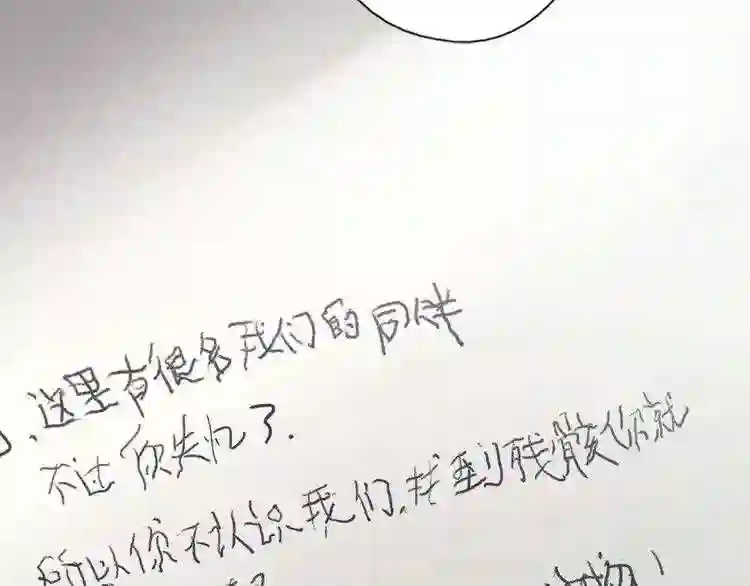 这里有很多我们的同伴
不过你失忆了.
所以你不认识我们,找到残骸你就